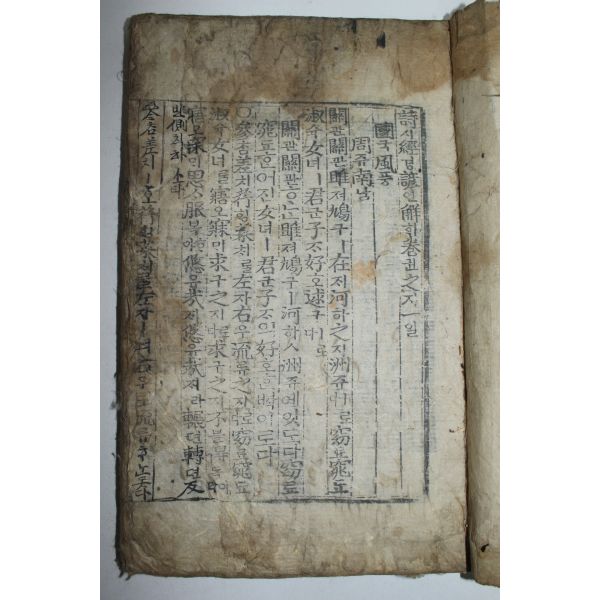 詩시經경諺언解ᄒᆡ卷권之지一일
國국風풍
周쥬南남
關관關관雎져鳩구ㅣ在ᄌᆡ河하之지洲쥬ㅣ로다窈요窕됴
淑슉女녀ㅣ君군子ᄌᆞ好호逑구ㅣ로다
關관關관ᄒᆞᄂᆞᆫ雎져鳩구ㅣ河하ㅅ洲쥬에잇도다窈요
窕됴ᄒᆞᆫ어진女녀ㅣ君군子ᄌᆞ의好호ᄒᆞᆫᄧᅡᆨ이로다
○參ᄎᆞᆷ差치荇ᄒᆡᆼ菜ᄎᆡ를左좌右우流류之지로다窈요窕됴
淑슉女녀를寤오寐ᄆᆡ求구之지로다求구之지不블得득이라
寤오寐ᄆᆡ思ᄉᆞ服복ᄒᆞ야悠유哉ᄌᆡ悠유哉ᄌᆡ라輾뎐轉뎐反
반側측ᄒᆞ소라